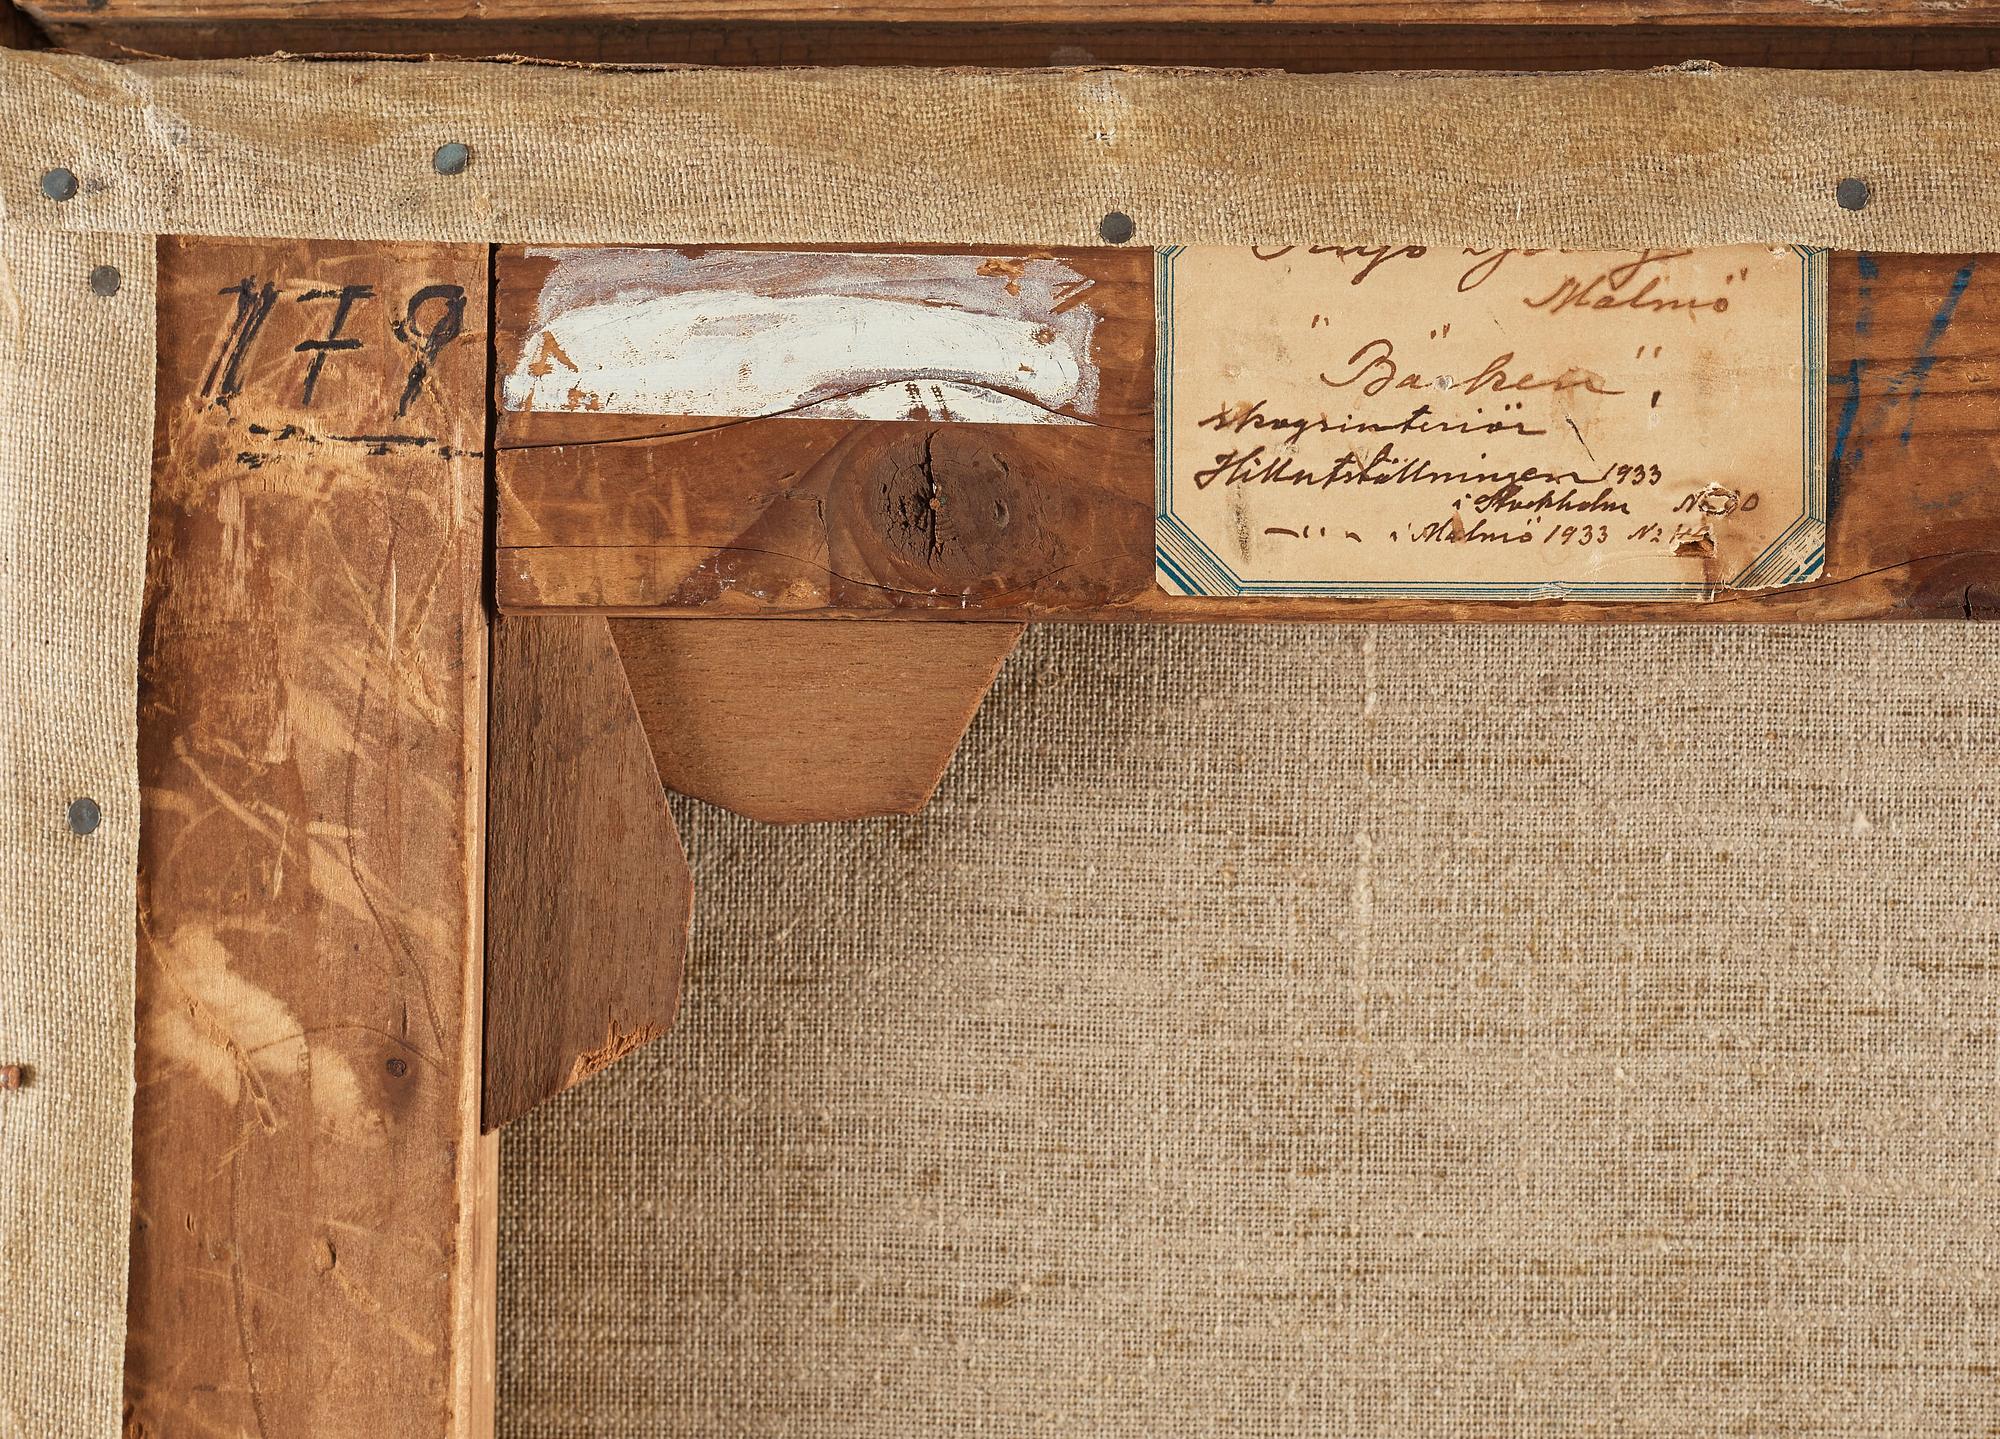 179
Malmö
"Bäcken",
skogsinteriör
Hillutställningen 1933
i Stockholm No
—"— i Malmö 1933 No